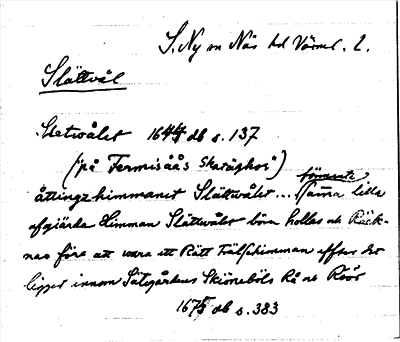 S. Ny sn Näs hd Värml. l.
Slättvål
Sletwålet 1644 db s. 137
("på Fermsåås skatägher")
förmente
åttingzhimmanet Slättwålet... Samma lilla
afgiärda Himman Slättwålet böra holles och Räck-
nas före att wara ett Rätt Frälsehimman effter det
ligger innom Sätegårdens Skiöneböls Rå och Röör
1675 db s. 383